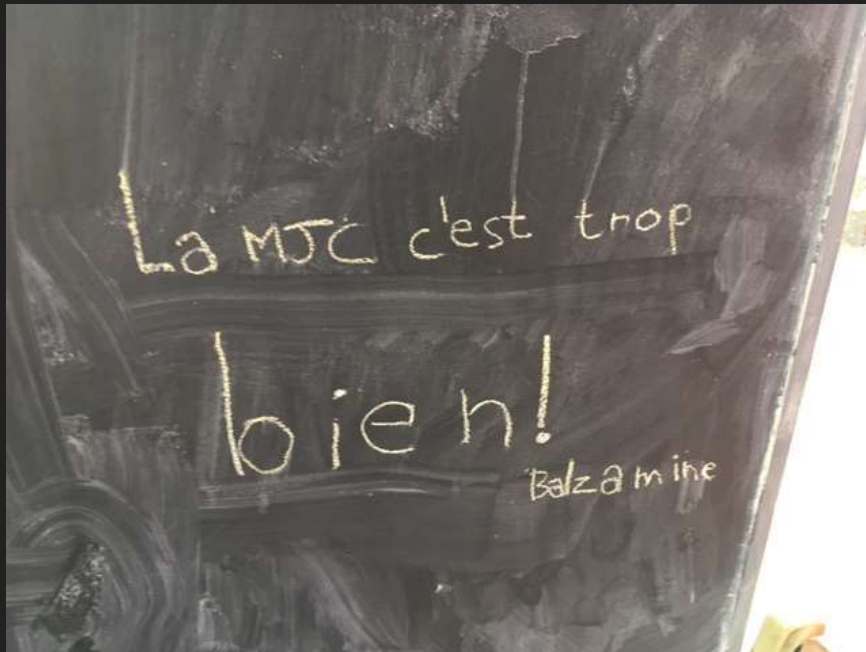 La MJC c'est trop
bien!
Balzamine